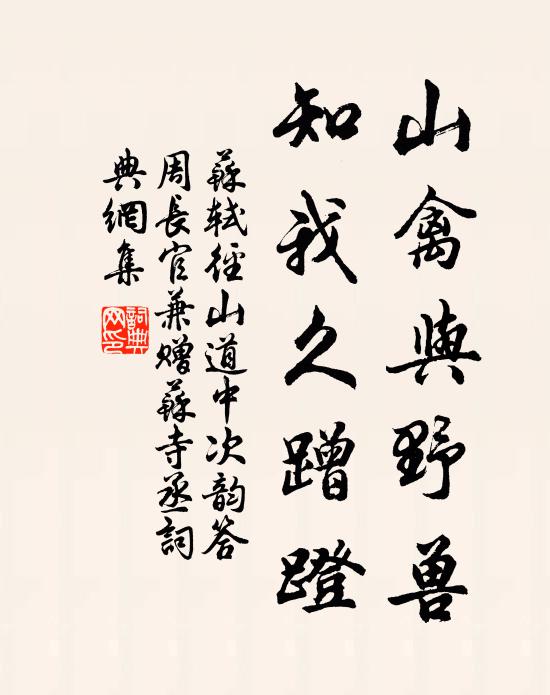 山禽與野兽
知我久蹭蹬
蘇軾徑山道中次韵答
周長官兼赠蘇寺丞詞
典網集
詞典
网印